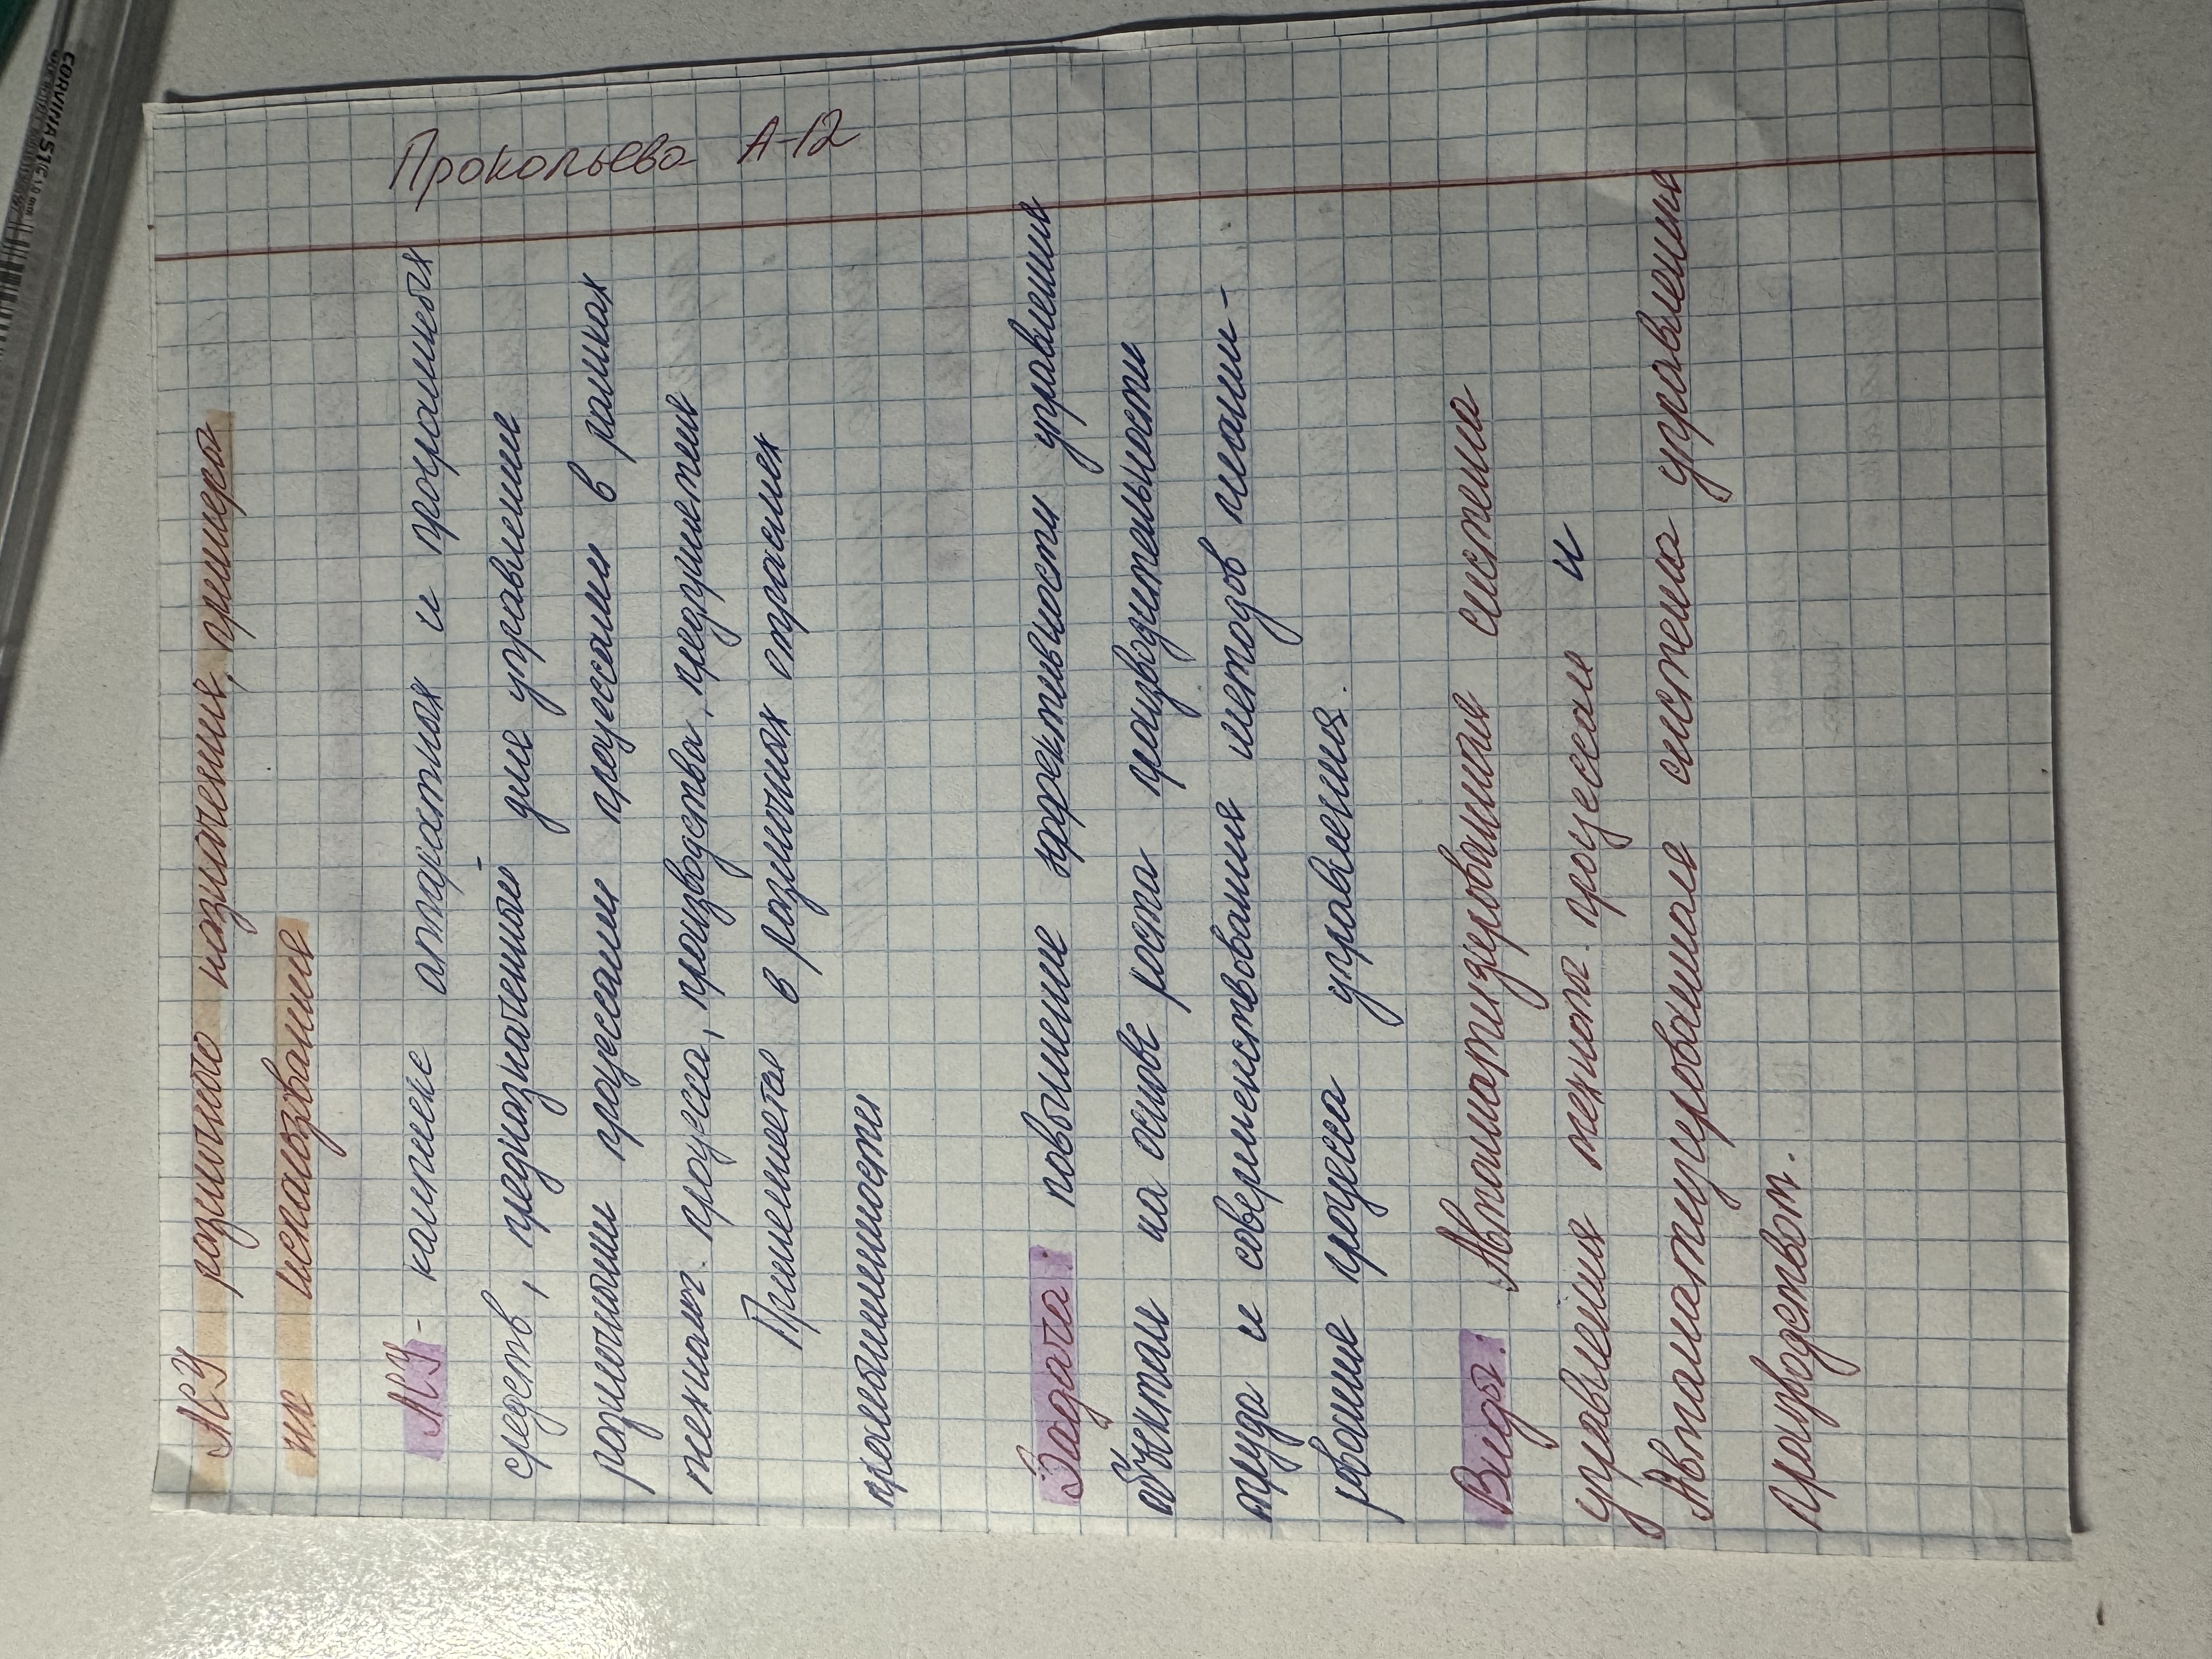 АСУ различного назначения, примеры
их использования
АСУ - комплекс аппаратных и программных
средств, предназначенный для управление
различными процессами процессами в рамках
технолог. процесса, производства, предприятия
Применяется в различных отраслях
промышленности
Задача: повышение эффективности управления
объектом на основе роста производительности
труда и совершенствования методов плани-
рование процесса управления.
Виды: Автоматизированная система
управления технолог. процессам и
Автоматизированная система управления
производством.
Прокопьева А-12
CORVINA 51